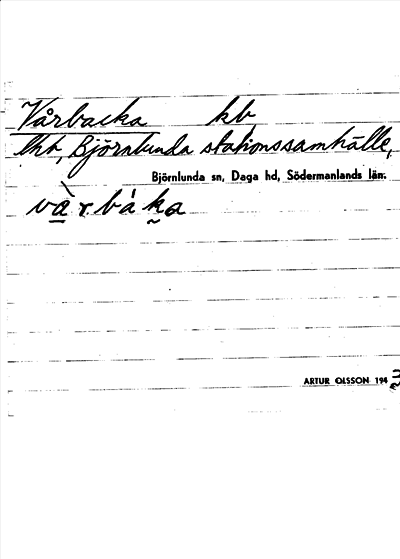 Vårbacka kb
lht, Björnlunda stationssamhälle,
Björnlunda sn, Daga hd, Södermanlands län.
và̱rbáka
ARTUR OLSSON 1943